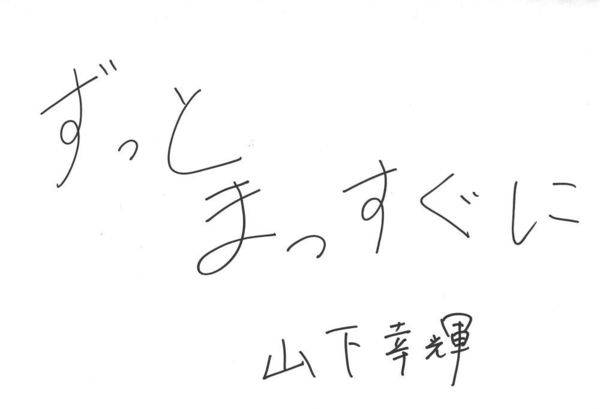 ずっと
まっすぐに
山下幸輝